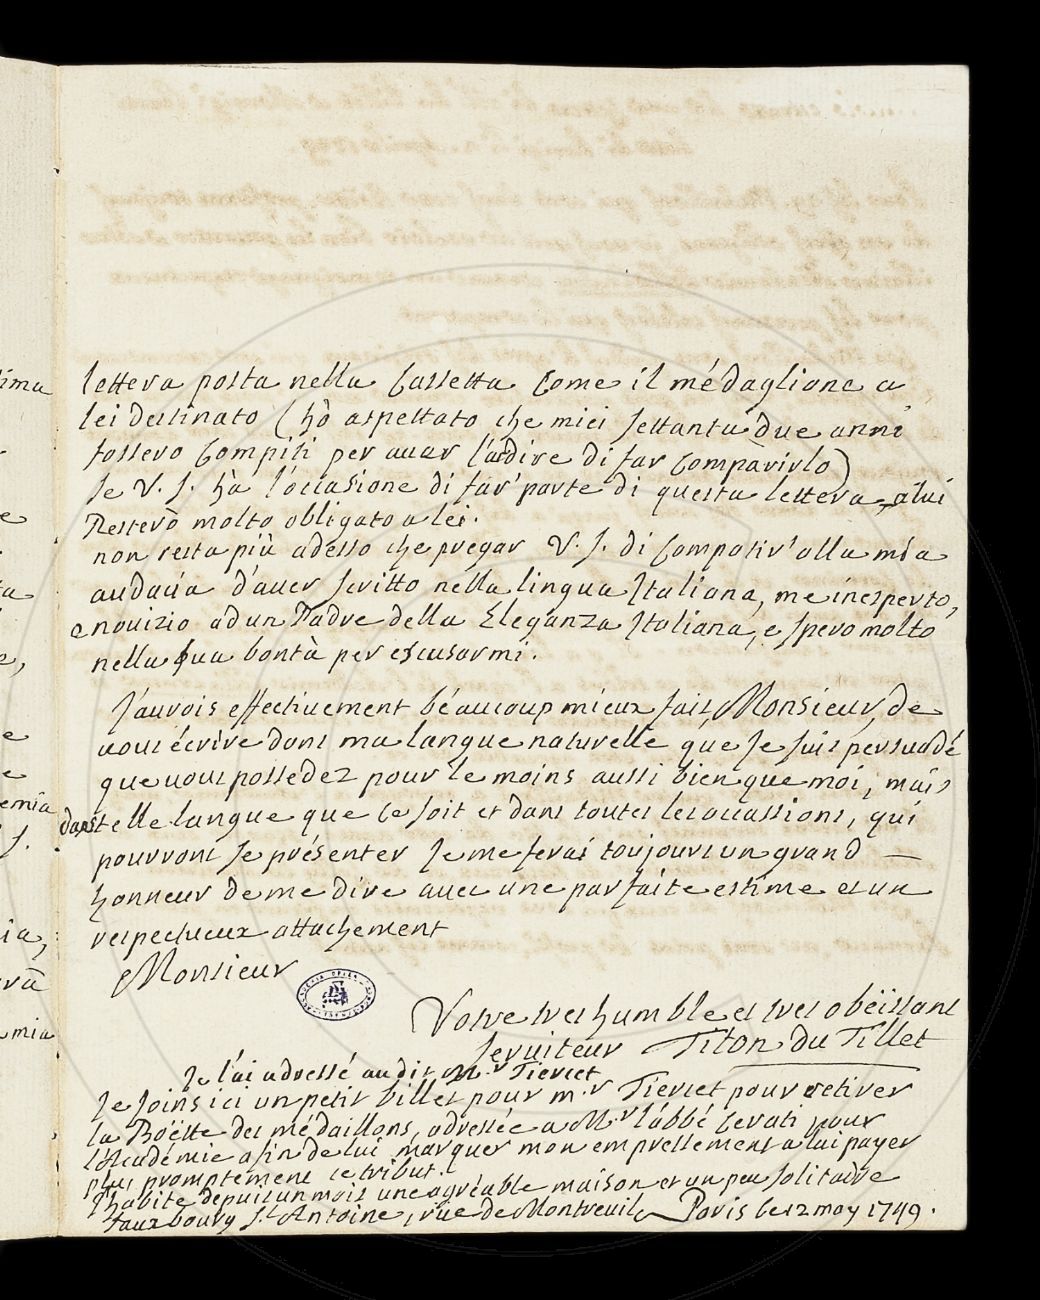 lettera posta nella Cassetta Come il médaglione a
lei destinato (hò aspettato che miei settanta due anni
fossero Compiti per auar l'ardire di far Comparirlo)
se V. S. hà l'occasione di far' parte di questa lettera a lui
Resterò molto obligato a lei.
non resta più adesso che pregar V. S. di Compatir' alla mia
audacia d'auer scritto nella lingua Italiana, me inesperto,
e nouizio ad un Padre della Eleganza Italiana, e spero molto
nella sua bontà per escusarmi.
J'aurois effectiuement béaucoup mieux fait, Monsieur, de
uous écrire dans ma langue naturelle que Je suis persuadé
que uous possedez pour le moins aussi bien que moi, mais
dans telle langue que Ce soit et dans toutes les occassions, qui
pourront se présenter Je me ferai toujours un grand
honneur de me dire auec une parfaite estime et un
respectueux attachement
Monsieur
Votre tres humble et tres obëissant
seruiteur Titon du Tillet
Je l'ai adressé au dit M.r Tiercet
Je Joins ici un petit billet pour m.r Tiercet pour retirer
la Boëtte des médaillons, adressée a M.r l'abbé Cerati pour
l'Académie afin de lui marquer mon empressement a lui payer
plus promptement ce tribut.
J'habite depuis un mois une agréable maison et un peu solitaire
faux bourg S.t Antoine, rüe de Montreuil Paris le 12 may 1749.